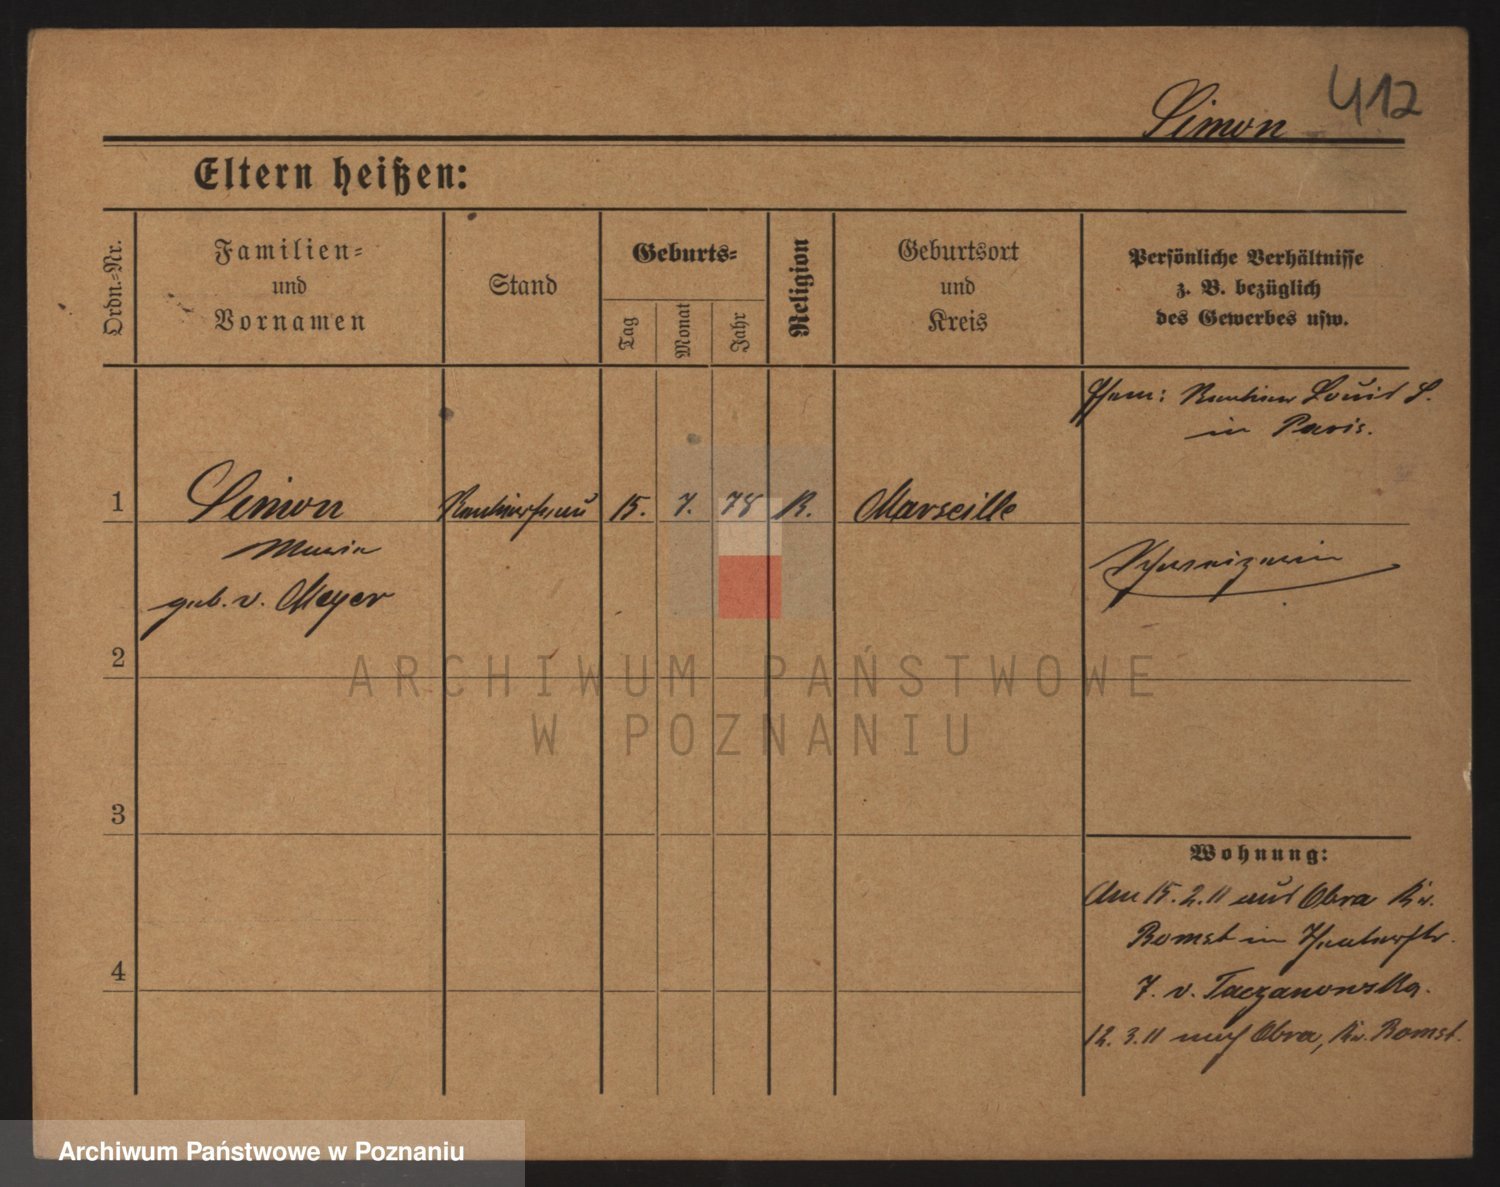 412
Simon
Eltern heißen:
Ordn.-Nr.
Familien-
und
Vornamen
Stand
Geburts-
Tag
Monat
Jahr
Religion
Geburtsort
und
Kreis
Persönliche Verhältnisse
z. B. bezüglich
des Gewerbes usw.
Ehem: Rentier Louis S.
in Paris.
1
Simon
Rentierfrau
15.
7.
78
R.
Marseille
Maria
geb. v. Meyer
Schweizerin
2
ARCHIWUM PAŃSTWOWE
W POZNANIU
3
Wohnung:
Am 15.2.11 aus Obra Kr.
Bomst in Theaterstr.
7. v. Taczanowska.
4
12.3.11 nach Obra, Kr. Bomst.
Archiwum Państwowe w Poznaniu